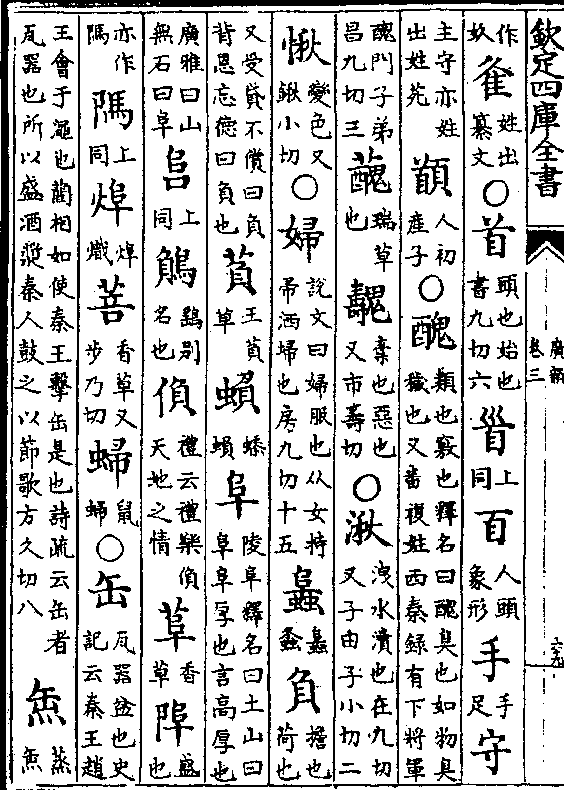 欽定四庫全書
廣韻
卷三
作姓出纂文○首頭也始也書九切六𩠐上同𦣻人頭象形手手足守
主守亦姓出姓苑人初產子○醜類也竅也釋名曰醜臭也如物臭穢也又畨複姓西秦錄有下將軍
醜門子弟昌九切三瑞草也魗棄也惡也又市壽切○湫洩水瀆也在九切又子由子小切二
愀變色又鍬小切○婦說文曰婦服也从女持帚洒埽也房九切十五負擔也荷也
又受貸不償曰負背恩忘德曰負也萯王萯草蝜阜陵阜釋名曰土山曰阜阜厚也言高厚也
廣雅曰山無石曰阜𨸏上同别名也偩禮云禮樂偩天地之情香草盛也
亦作上同熾菩香草又步乃切鼠○缶瓦器也史記云秦王趙
王會于澠也藺相如使秦王擊缶是也詩疏云缶者瓦器也所以盛酒漿秦人鼓之以節歌方久切八缹蒸缹